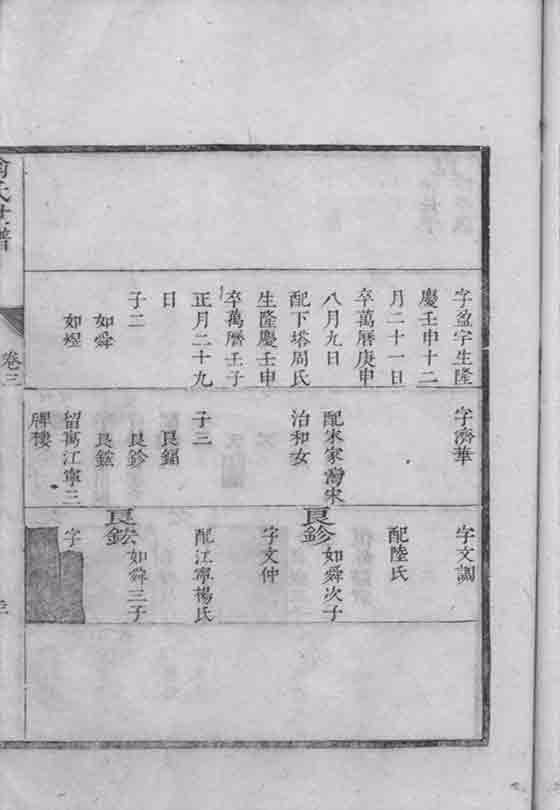 字盈宇生隆
慶壬申十二
月二十一日
卒萬曆庚申
八月九日
配下塔周氏
生隆慶壬申
卒萬曆壬子
正月二十九
日
子二
如舜
如煜
字濟華
配宋家灣宋
治和女
子三
良鍢
良鉁
良鋐
留寓江寧三
牌樓
字文調
配陸氏
良鉁
如舜次子
字文仲
配江寧楊氏
良鋐
如舜三子
字
氏世譜
卷三